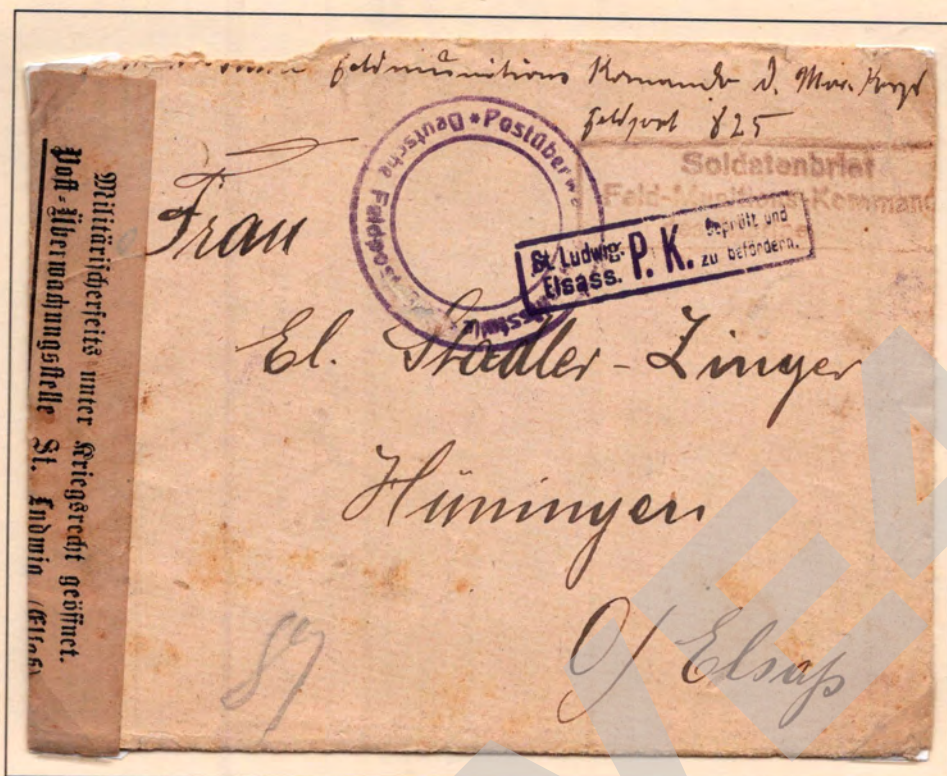 Feldmunitions Komando d. Mar. Korps
Feldpost 825
Soldatenbrief
Feld-Munitions-Kommand
Deutsche Feldpost * Postüberwa
St. Ludwig-Elsass. P. K. Geprüft und zu befördern.
Militärischerseits unter Kriegsrecht geöffnet.
Post-Überwachungsstelle St. Ludwig (Elsaß)
Frau
El. Stadler-Zinger
Hüningen
O/ Elsaß
89